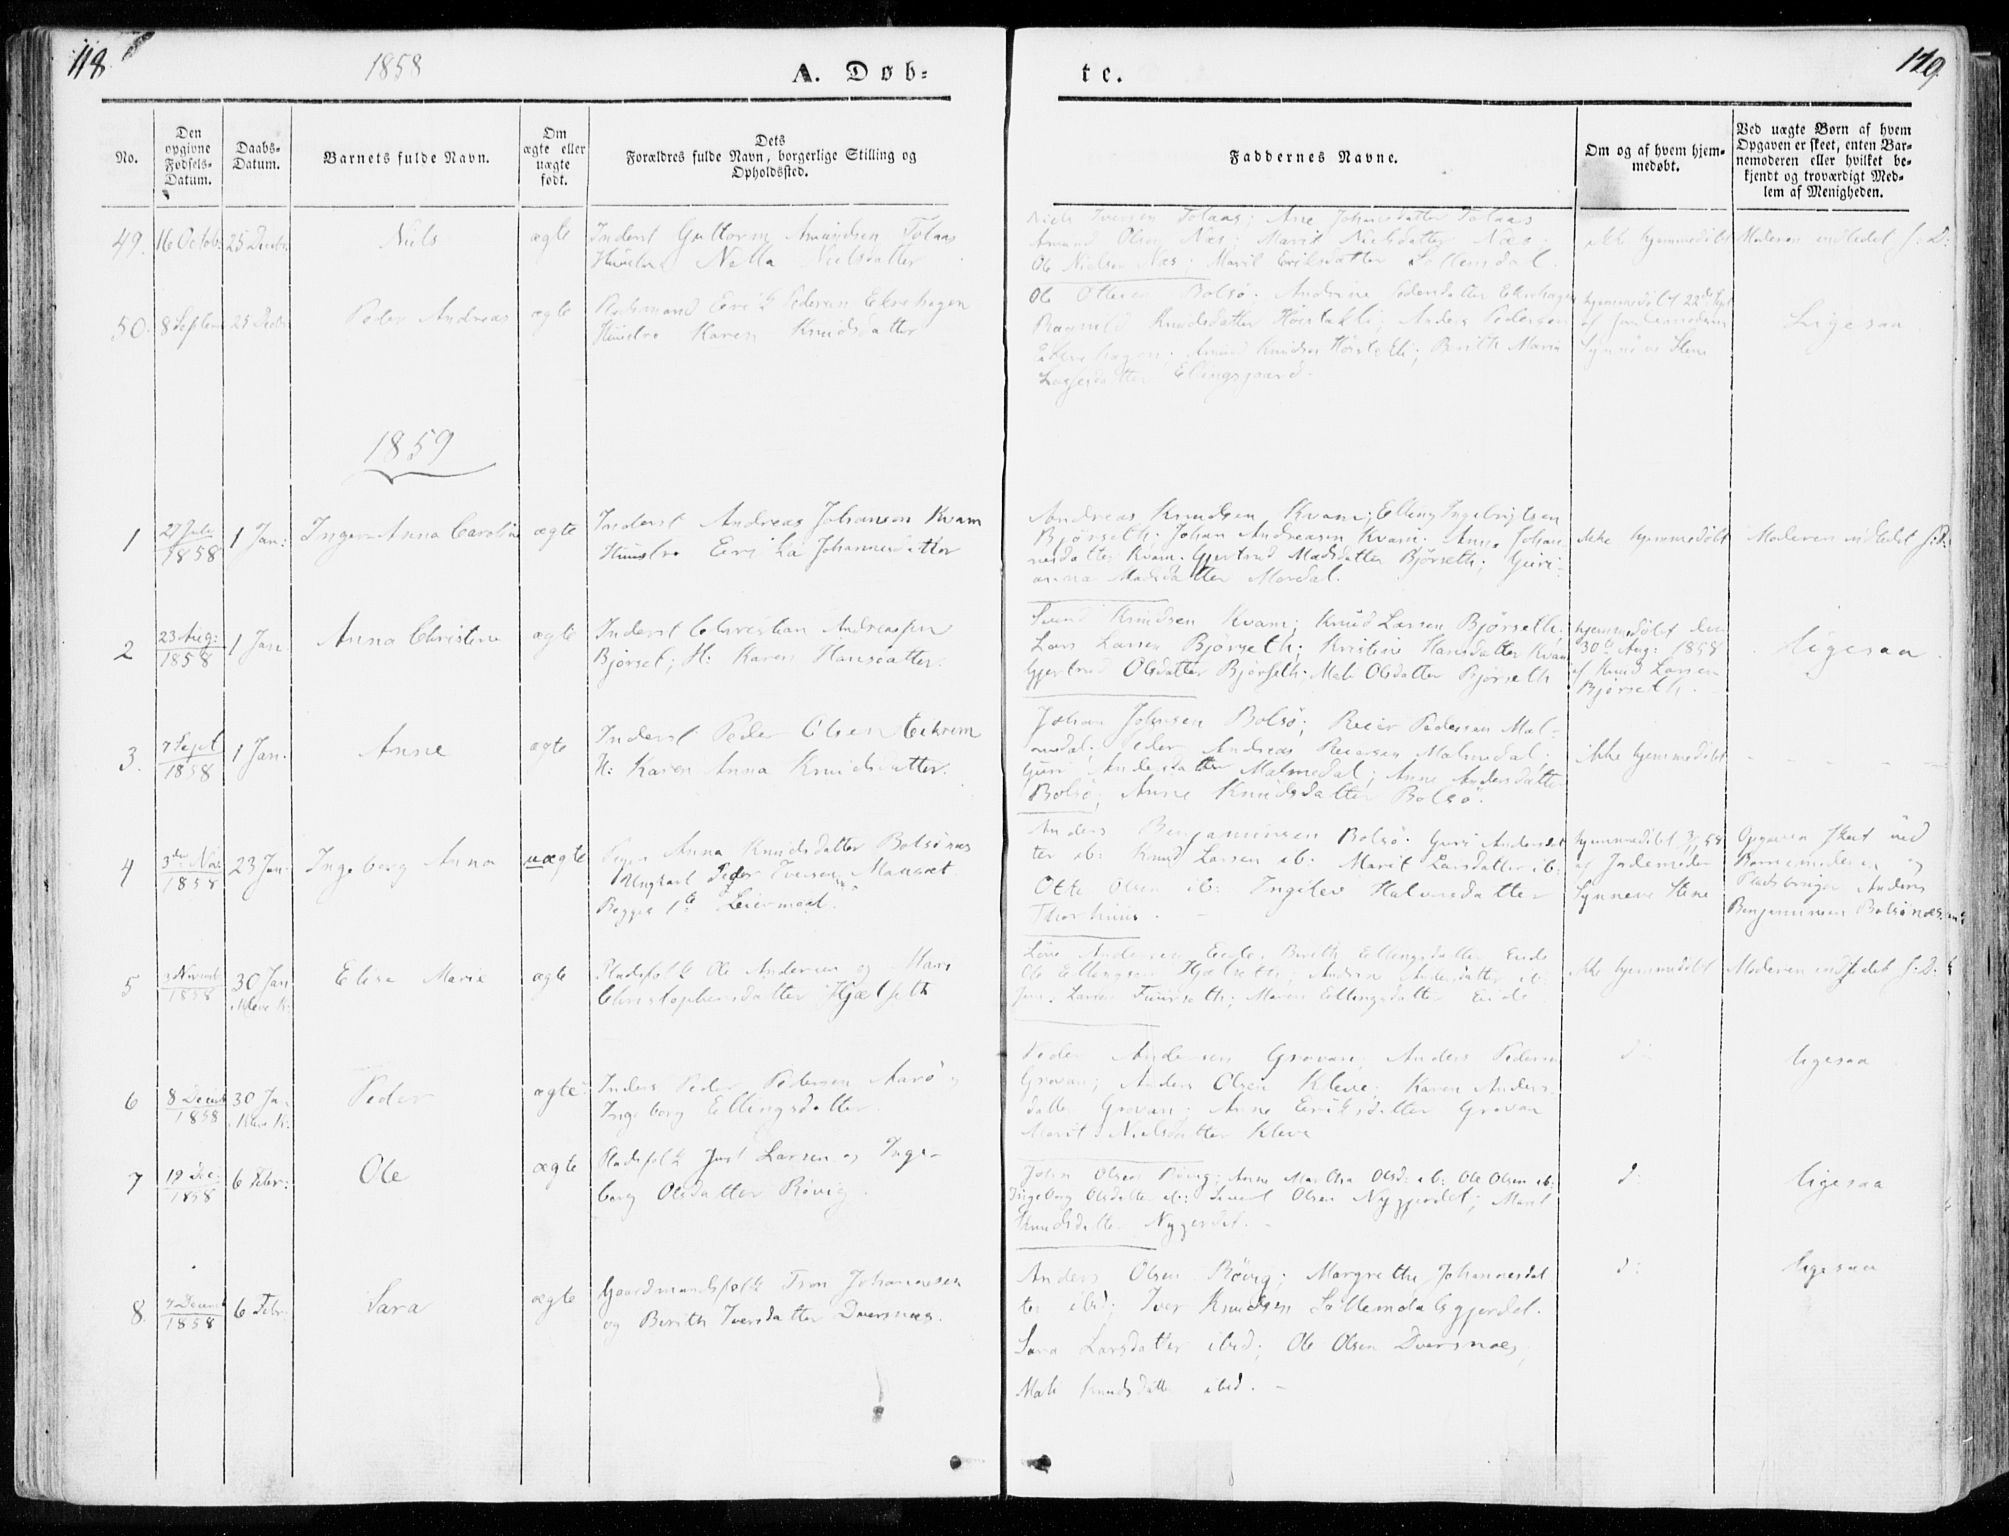 118
1858
A. Døb-
te.
119
No.
Den opgivne Fødsels-Datum.
Daabs-Datum.
Barnets fulde Navn.
Om ægte eller uægte født.
Dets Forældres fulde Navn, borgerlige Stilling og Opholdssted.
Faddernes Navne.
Om og af hvem hjemmedøbt.
Ved uægte Børn af hvem Opgaven er skeet, enten Barnemoderen eller hvilket bekjendt og troværdigt Medlem af Menigheden.
49. 16 Octob: 25 Decbr Niels ægte
Inderst Guttorm Amundsen Tolaas
Hustru Nielsdatter
Iversen Tolaas; Ane Johansdatter Tolaas
Amund Olsen Næs; Marit Nielsdatter Næs;
Ole Nielsen Næs; Marit Eriksdatter Sollemdal.
ikke hjemmedøbt
Moderen indledet s: D:
50. 8 Septem 25 Decbr Peder Andreas ægte
Pladsmand Erik Pedersen Ekrehagen
Hustru Karen Knudsdatter
Ole Ottesen Bolsø. Andrine Pedersdatter Ekrehagen
Ragnild Knudsdatter; Anders Pedersen
Ekrehagen. Amund Knudsen; Berith Maria
Lassesdatter Ellingsgaard.
hjemmedøbt 22de Sept
af Jordemoderen
Synnøve Stene
Ligesaa
1859
1 27 Juli 1858 1 Jan: Inger Anna Caroline ægte
Inderst Andreas Johansen Kvam
Hustru Erika Johannesdatter
Andreas Knudsen Kvam; Elling Ingebrigtsen
Bjørseth. Johan Andreasen Kvam. Anne Johan-
nesdatter Kvam. Gjertrud Madsdatter Bjørseth; Guri-
anna Madsdatter Mordal.
ikke hjemmedøbt
Moderen indledet s: D:
2 23 Aug: 1858 1 Jan. Anna Christine ægte
Inderst Christian Andreassen
Bjørset; H: Karen Hansdatter.
Svend Knudsen Kvam; Knud Larsen Bjørseth.
Lars Larsen Bjørseth; Kristine Hansdatter Kvam
Gjertrud Olsdatter Bjørseth. Mali Olsdatter Bjørseth
hjemmedøbt den
30te Aug: 1858
af Knud Larsen
Bjørseth.
Ligesaa.
3. 7 Sept 1858 1 Jan. Anne ægte
Inderst Peder Olsen Eikrem
H: Karen Anna Knudsdatter.
Johan Johnsen Bolsø; Reier Pedersen Mal-
medal. Peder Andreas Reiersen Malmedal;
Guri Andersdatter Malmedal; Anne Andersdatter
Bolsø; Anne Knudsdatter Bolsø.
ikke hjemmedøbt
4 3die Nov 1858 23 Jan. Ingeborg Anna uægte
Pigen Anna Knudsdatter Bolsønæs
Ungkarl Peder Iversen Mauset.
Begges 1te Leiermaal.
Anders Benjaminsen Bolsø. Guri Andersdat
ter ib: Knud Larsen ib: Marit Larsdatter ib:
Otte Olsen ib: Ingilev Halvorsdatter
Thorhuus.
hjemmedøbt 3/11 58
af Jordemoder
Synneve Stene
Opgaven skeet ved
Barnemoderen og
Pladsbruger Anders
Benjaminsen Bolsønæs.
5 1858 30 Jan Kleve K: Elisa Maria ægte
Pladsfolk Ole Andersen og Mari
Christophersdatter Hjælseth
Andersen Eide. Berith Ellingsdatter Eide
Ole Ellingsen Hjælseth; Andrea Andersdatter ib:
Larsen Fuurseth; Maren Ellingsdatter Eide
ikke hjemmedøbt
Moderen indledet s: D:
6 8 Decemb 1858 30 Jan Kleve K: Peder ægte
Inders Peder Pedersen Aarø og
Ingeborg Ellingsdatter
Peder Andersen Grovan; Anders Pedersen
Grovan; Anders Olsen Kleve; Karen Anders-
datter Grovan; Anne Eriksdatter Grovan
Marit Nielsdatter Kleve
d:
ligesaa
7 19 Dec: 1858 6 Febr: Ole ægte
Pladsfolk Just Larsen og Inge-
borg Olsdatter Røvig.
John Olsen Røvig; Anne Martha Olsd: ib: Ole Olsen ib:
Ingeborg Olsdatter ib: Sivert Olsen Nygjerdet; Marit
Knudsdatter Nygjerdet.
d:
ligesaa
8. 7 Decemb 1858 6 Febr. Sara ægte
Gaardmandsfolk Tron Johannesen
og Berith Iversdatter Dversnæs.
Anders Olsen Røvig; Margrethe Johannesdat
ter ibid; Iver Knudsen Sollemdalsgjerdet.
Sara Larsdatter ibid; Ole Olsen Dversnæs;
Mali Knudsdatter ibid.
d:
ligesaa